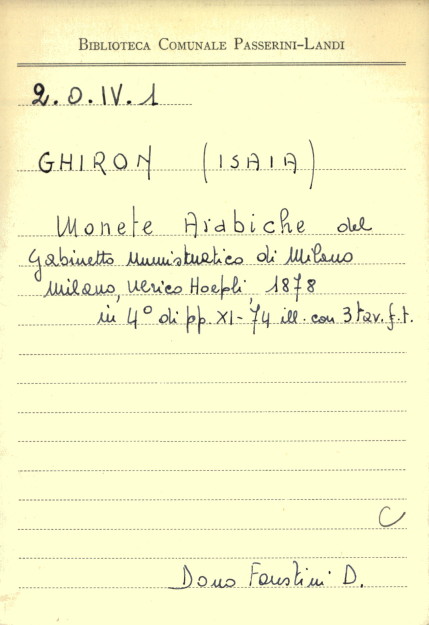 BIBLIOTECA COMUNALE PASSERINI-LANDI
2.O.IV.1
GHIRON (ISAIA)
Monete Arabiche del
Gabinetto Numismatico di Milano
Milano, Ulrico Hoepli, 1878
in 4° di pp. XI-74 ill. con 3 tav. f.t.
C
Dono Faustini D.